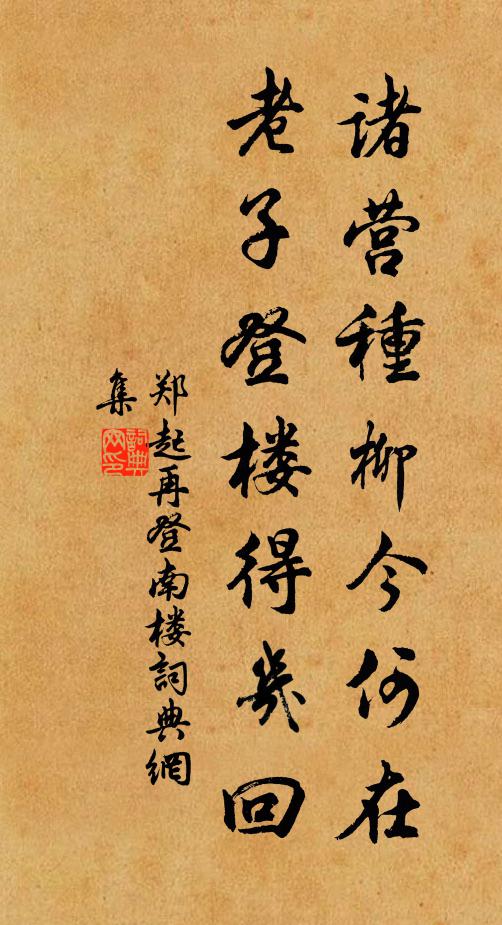 诸营種柳今何在
老子登楼得几回
郑起再登南楼詞典網
集
詞典网印